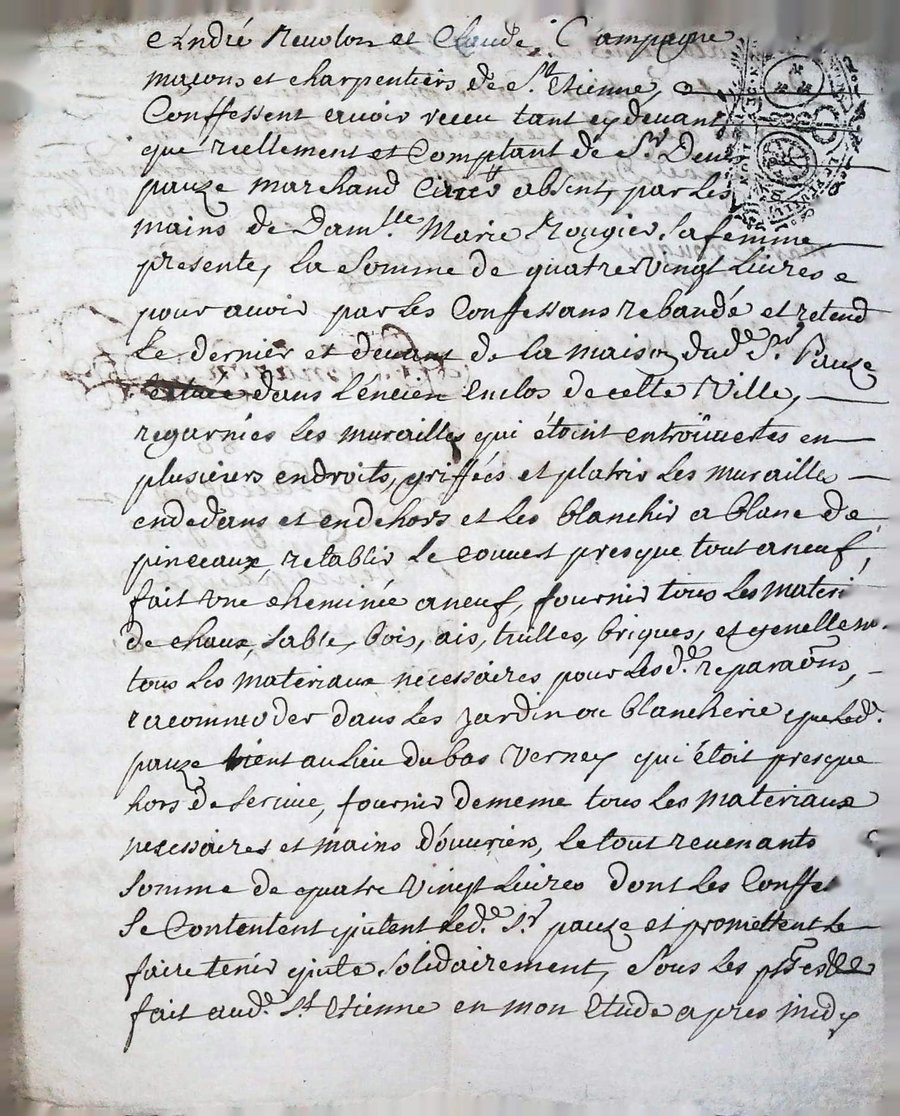 André Reuolon et Claude Campagne
maçons et charpentiers de St. Etienne,
Confessent auoir receu tant cy deuant
que reellement et Comptant de Sr. Denis
pauze marchand absent, par les
mains de Damlle. Marie Rougier sa femme
presente, la Somme de quatre vingt Liures
pour auoir par les Confessans rebandé et retend
Le dernier et deuant de la maison dud. Sr. Pauze
dans L'encien Enclos de cette Ville,
regarnies les murailles qui étoint entroüuertes en
plusiers endroits, griffées et platrir les murailles
endedans et endehors et les blanchir a blanc de
pinceaux, retablir le couuert presque tout aneuf,
fait vne cheminée aneuf, fournir tous les materi
de chaux, sable, bois, ais, tuilles, briques, et genellem.
tous les materiaux necessaires pour lesd. reparaons,
racommoder dans les jardin ou blancherie que led.
pauze tient au lieu du bas Verney qui étoit presque
hors de seruice, fournir de meme tous les materiaux
necessaires et mains d'ouuriers, le tout reuenants
Somme de quatre vingt Liures dont les Confes
se Contentent quitent led. Sr. pauze et promettent le
faire tenir quite Solidairement, sous les
fait aud. St Etienne en mon Etude apres midy